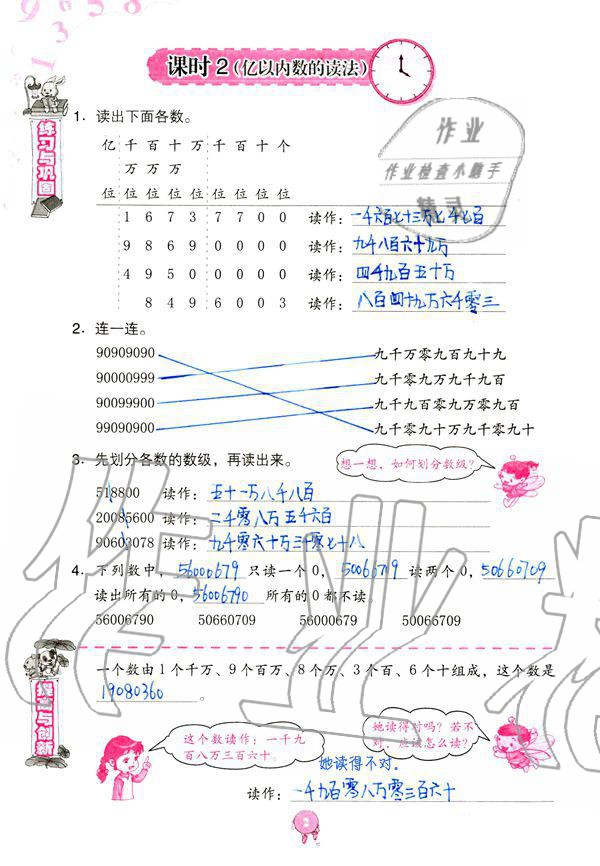 课时2(亿以内数的读法)
练习与巩固
1. 读出下面各数。
亿 千 百 十 万 千 百 十 个
万 万 万
位 位 位 位 位 位 位 位 位
1 6 7 3 7 7 0 0 读作:一千六百七十三万七千七百
9 8 6 9 0 0 0 0 读作:九千八百六十九万
4 9 5 0 0 0 0 0 读作:四千九百五十万
8 4 9 6 0 0 3 读作:八百四十九万六千零三
作业
作业检查小助手
精灵
2. 连一连。
90909090 九千万零九百九十九
90000999 九千零九万九千九百
90099900 九千九百零九万零九百
99090900 九千零九十万九千零九十
3. 先划分各数的数级,再读出来。
想一想,如何划分数级?
518800 读作:五十一万八千八百
20085600 读作:二千零八万五千六百
90603078 读作:九千零六十万三千零七十八
4. 下列数中,56000679只读一个0,50066079读两个0,50660709
读出所有的0,56006790所有的0都不读。
56006790 50660709 56000679 50066709
练 与创新
一个数由1个千万、9个百万、8个万、3个百、6个十组成,这个数是
19080360。
这个数读作:一千九
百八万三百六十。
她读得对吗?若不
对,应读怎么读?
她读得不对。
读作:一千九百零八万零三百六十
2
作业精